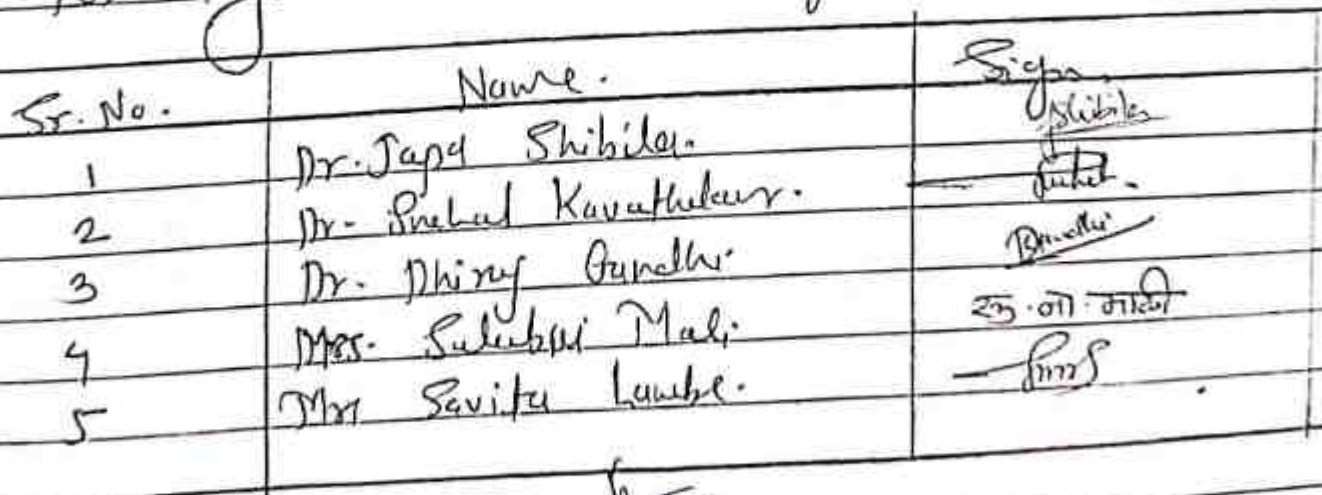 Sr. No. Name. Sign.
1 Dr. Japa Shibila. Shibila
2 Dr. Snehal Kavathekar.
3 Dr. Dhiraj Gandhi
4 Mrs. Mali
5 Mrs Savita Lambe.